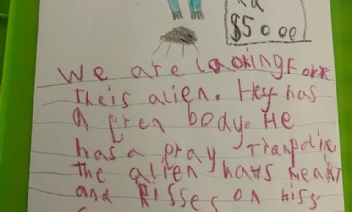 $5000
We are looking Forr
theis alien. Hey has
A gren body. He
has a gray Tranpoline
the alien hats heart
and kisses on hiss